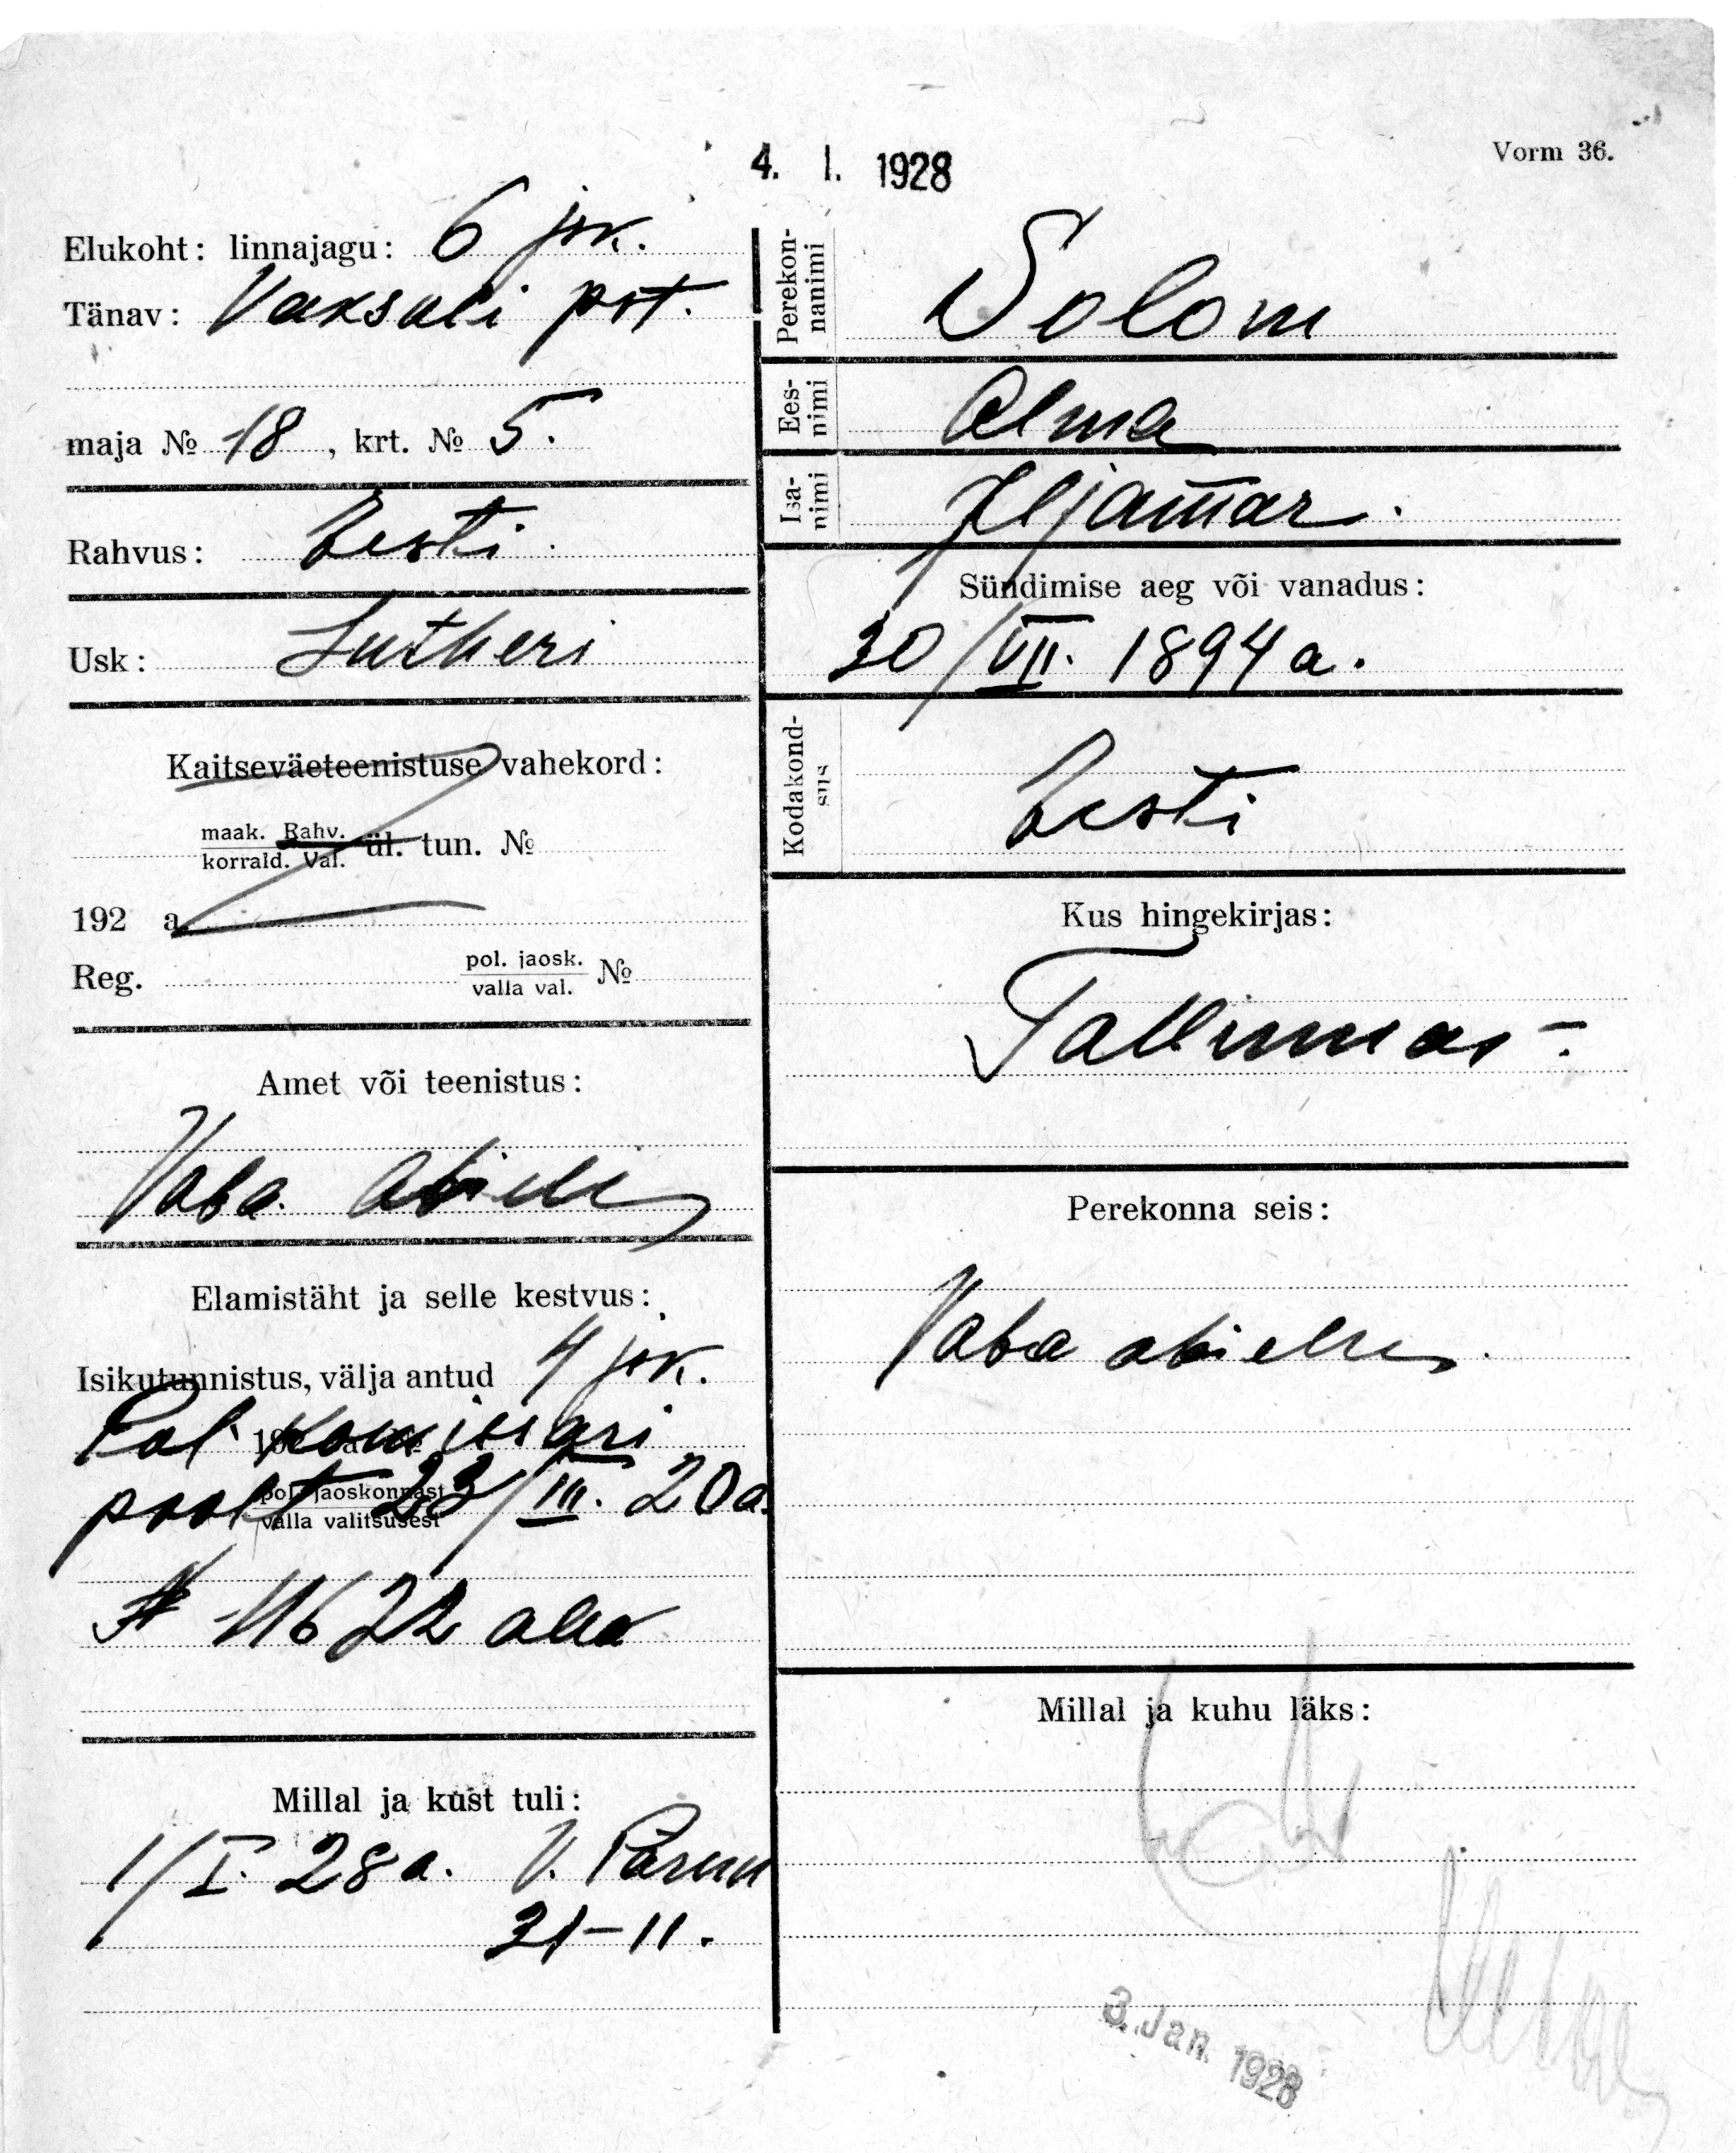 4. I. 1928
Vorm 36.
Elukoht: linnajagu: 6 jsk.
Tänav: Vaksali pst.
maja № 18, krt. № 5.
Rahvus: Eesti.
Usk: Lutheri
Kaitseväeteenistuse vahekord:
maak. Rahv.
korrald. Val. ül. tun. №
192 a.
Reg. pol. jaosk.
valla val. №
Amet või teenistus:
Vaba abielu
Elamistäht ja selle kestvus:
Isikutunnistus, välja antud 4 jsk.
Pol komissari
pol. jaoskonnast
poolt 23/III. 20 a.
valla valitsusest
№ 11622 all
Millal ja kust tuli:
1/I. 28 a. V. Pärnu
31-11.
Perekonnanimi
Solom
Eesnimi
Alma
Isanimi
Sündimise aeg või vanadus:
30/VII. 1894 a.
Kodakondsus
Eesti
Kus hingekirjas:
Tallinnas.
Perekonna seis:
Vaba abielus.
Millal ja kuhu läks:
3. Jan. 1928